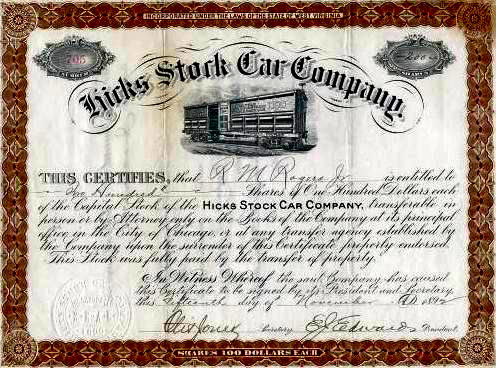 INCORPORATED UNDER THE LAWS OF THE STATE OF WEST VIRGINIA
NUMBER
705
SHARES
Hicks Stock Car Company.
THIS CERTIFIES, that R M Rogers Jr is entitled to
One Hundred Shares of One Hundred Dollars each
of the Capital Stock of the HICKS STOCK CAR COMPANY, transferable in
person or by Attorney only on the Books of the Company at its principal
office in the City of Chicago, or at any transfer agency established by
the Company upon the surrender of this Certificate properly endorsed.
This Stock was fully paid by the transfer of property.
In Witness Whereof the said Company has caused
this Certificate to be signed by its President and Secretary
this Fifteenth day of November A.D. 1892
Secretary E J Edwards President
SHARES 100 DOLLARS EACH